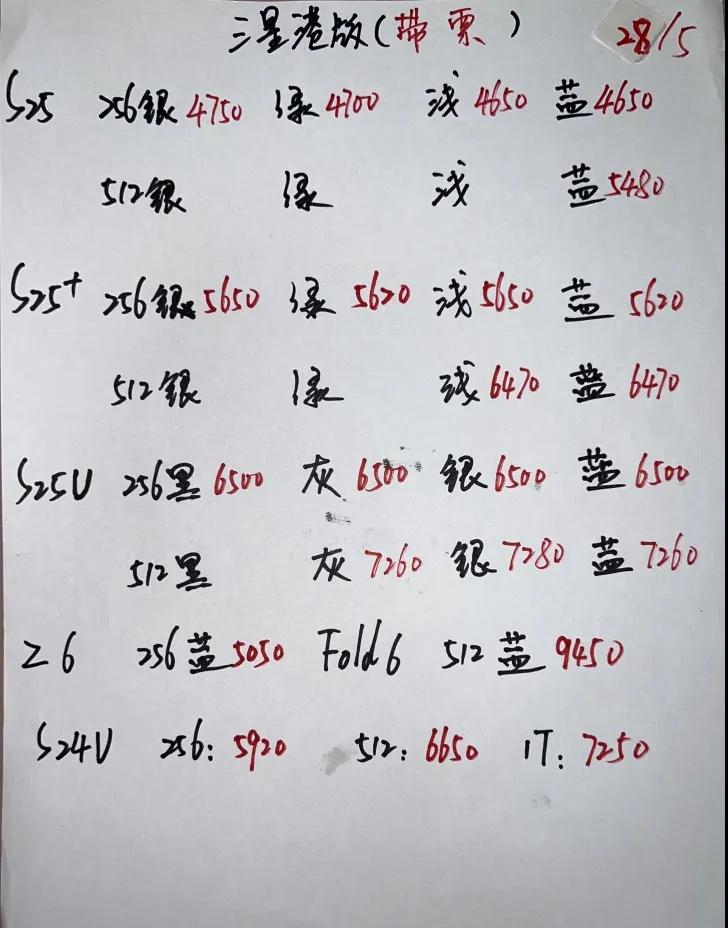 三星港版(带票) 28/5
S25 256銀4750 绿4700 浅4650 蓝4650
512銀 绿 浅 蓝5480
S25+ 256銀5650 绿5620 浅5650 蓝5620
512銀 绿 浅6470 蓝6470
S25U 256黑6500 灰6500 銀6500 蓝6500
512黑 灰7260 銀7280 蓝7260
Z6 256蓝5050 Fold6 512蓝9450
S24U 256:5920 512:6650 1T:7250